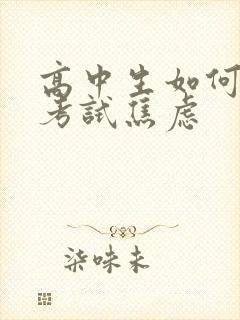 高中生如何
考試焦虑
柒味未